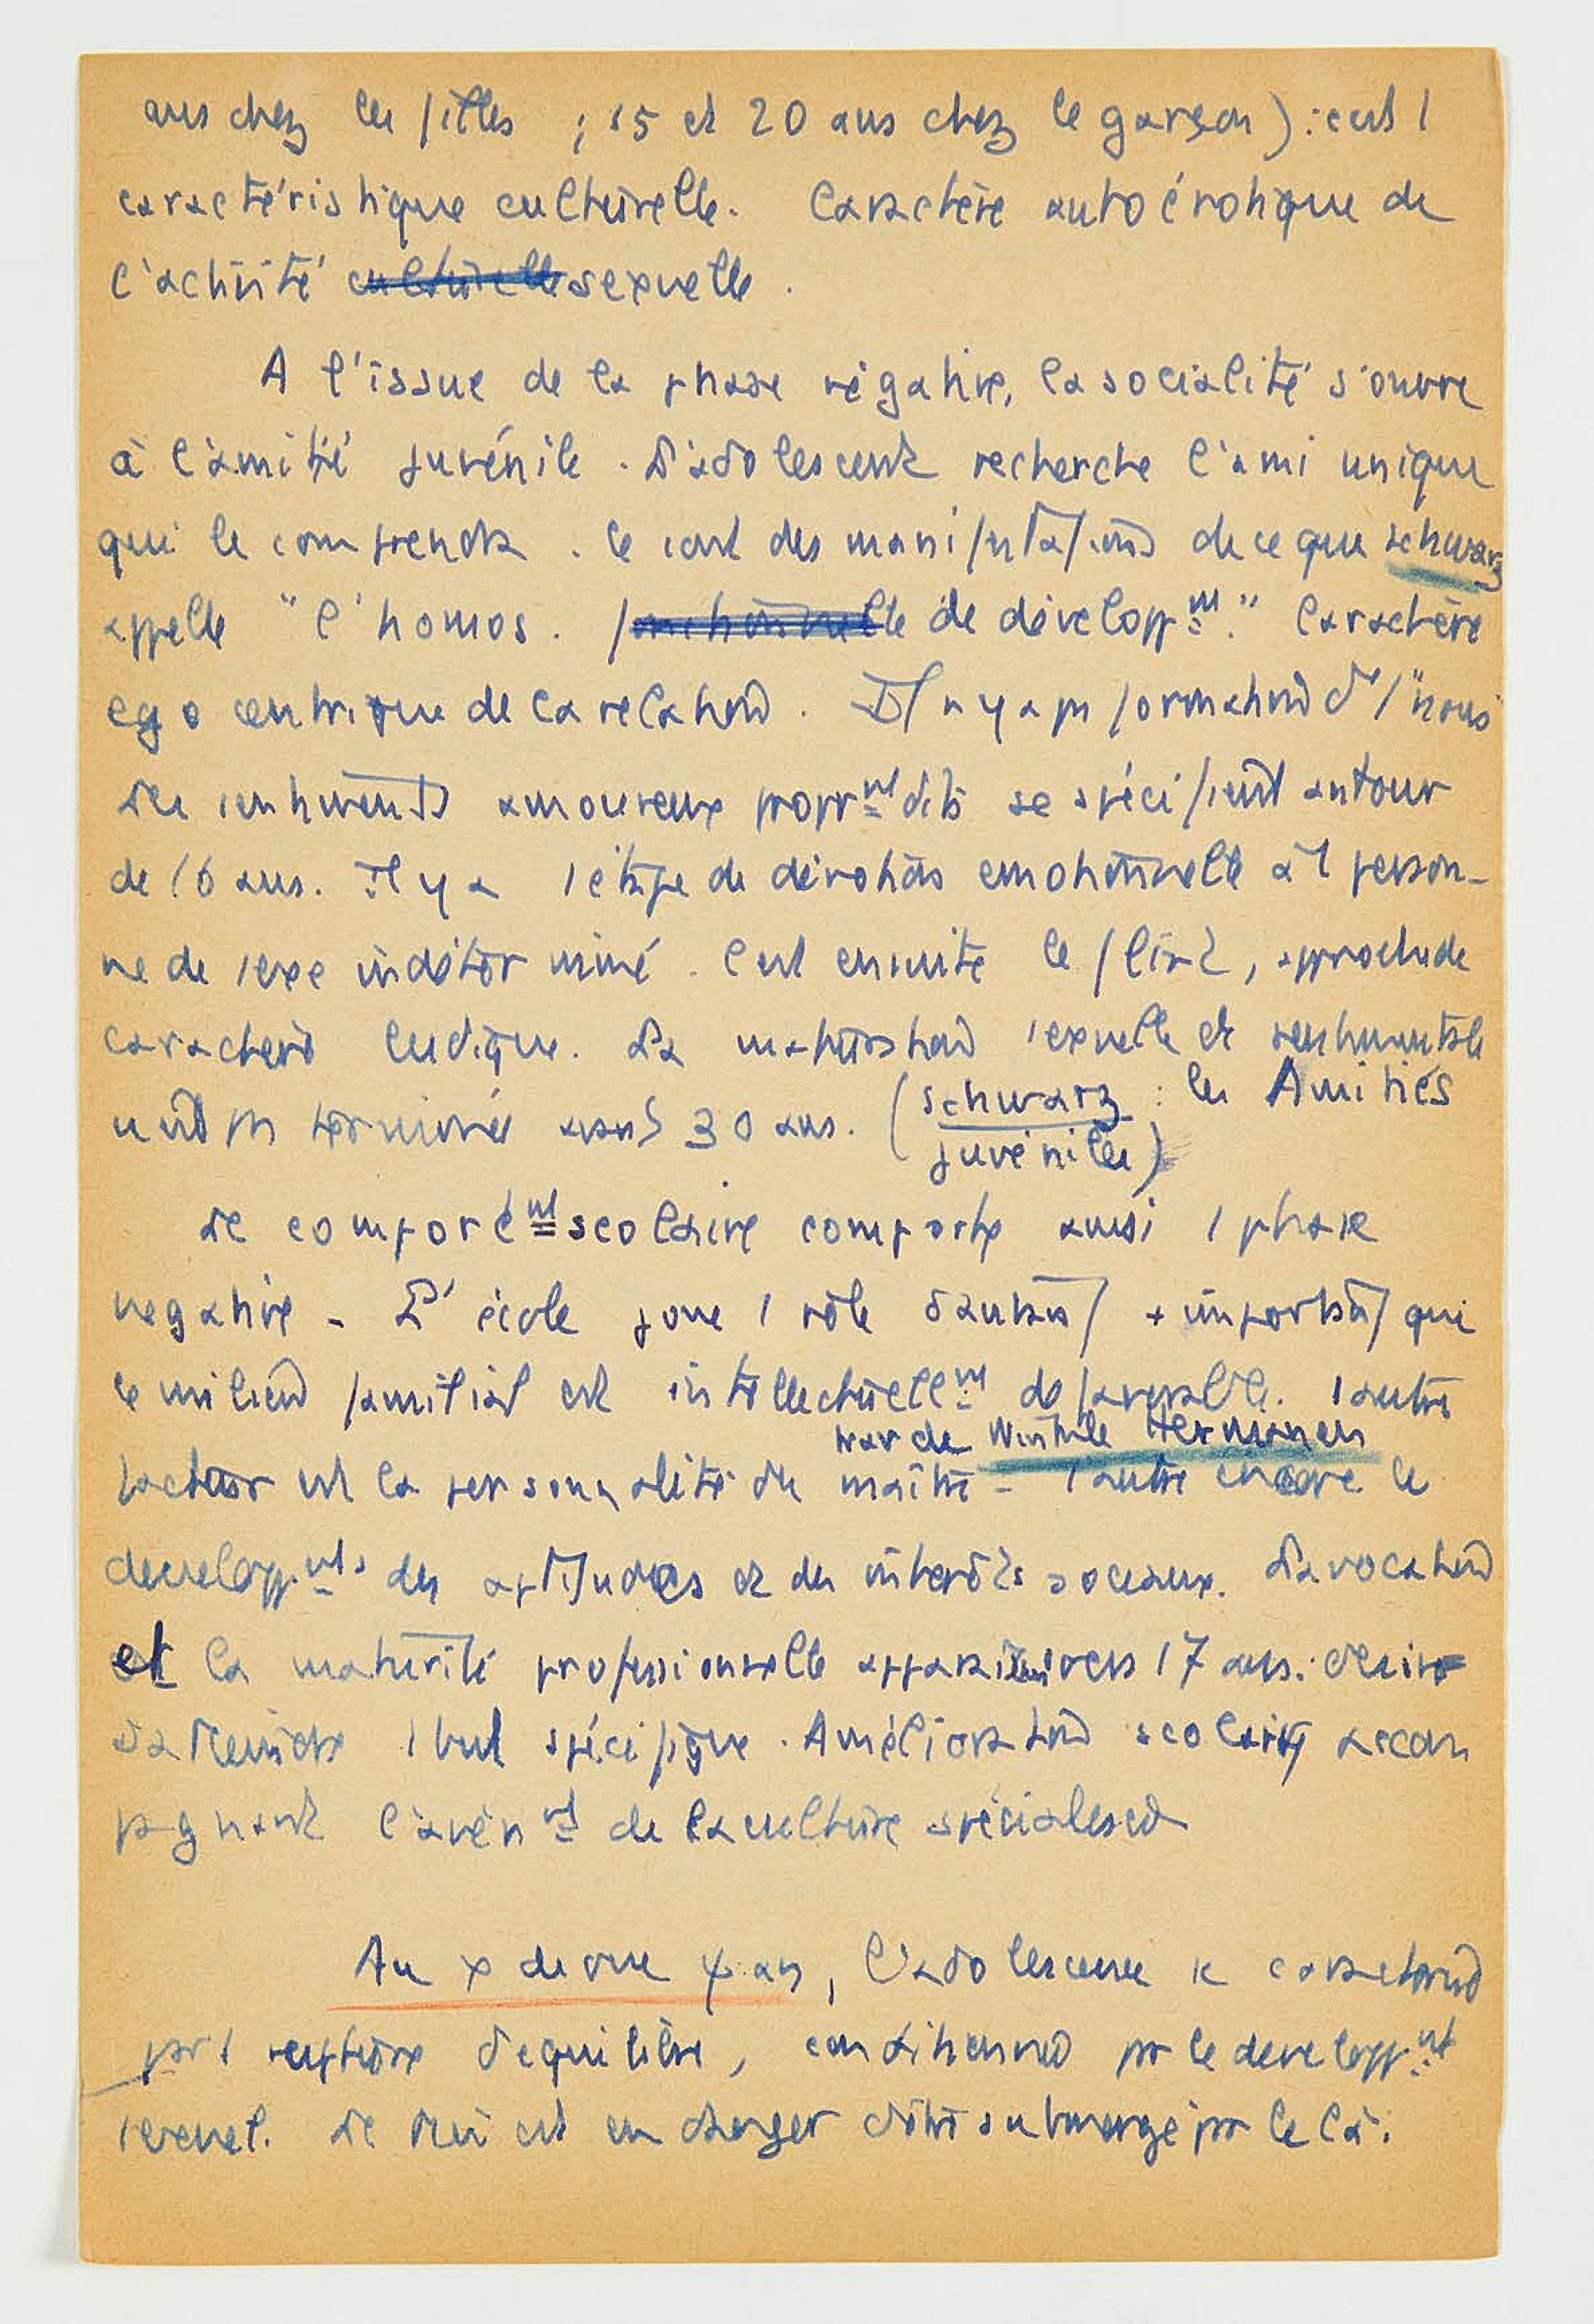 ans chez les filles ; 15 et 20 ans chez le garçon) : c'est 1
caractéristique culturelle. Caractère autoérotique de
l'activité culturelle sexuelle.
A l'issue de la phase négative, la socialité s'ouvre
à l'amitié juvénile. L'adolescent recherche l'ami unique
qui le comprendra. Ce sont des manifestations de ce que Schwarz
appelle "l'homos. fonctionnelle de développmt." Caractère
egocentrique de la relation. Il n'y a pas formation d'1 "nous"
Les sentiments amoureux proprmt dits se spécifient autour
de 16 ans. Il y a 1 étape de dévotion emotionnelle à 1 person-
ne de sexe indéterminé. C'est ensuite le flirt, approche de
caractère ludique. La maturation sexuelle et sentimentale
n'est pas terminée avant 30 ans. (Schwarz : les Amitiés
juvéniles)
Le comportemt scolaire comporte aussi 1 phase
negative - L'école joue 1 rôle d'autant + important que
le milieu familial est intellectuellemt défavorable. 1 autre
trav de Winnile Hermanen
facteur est la personnalité du maître - 1 autre encore le
developpmts des aptitudes et des intérêts sociaux. La vocation
et la maturité professionnelle apparaissent vers 17 ans : desir
d'atteindre 1 but spécifique. Amélioration scolaire accom
pagnant l'avènmt de la culture spécialisée
Au x de vue ψ an, l'adolescence se caractérise
par 1 rupture d'equilibre, conditionnée par le developpmt
sexuel. Le Moi est en danger d'être submergé par le ça.